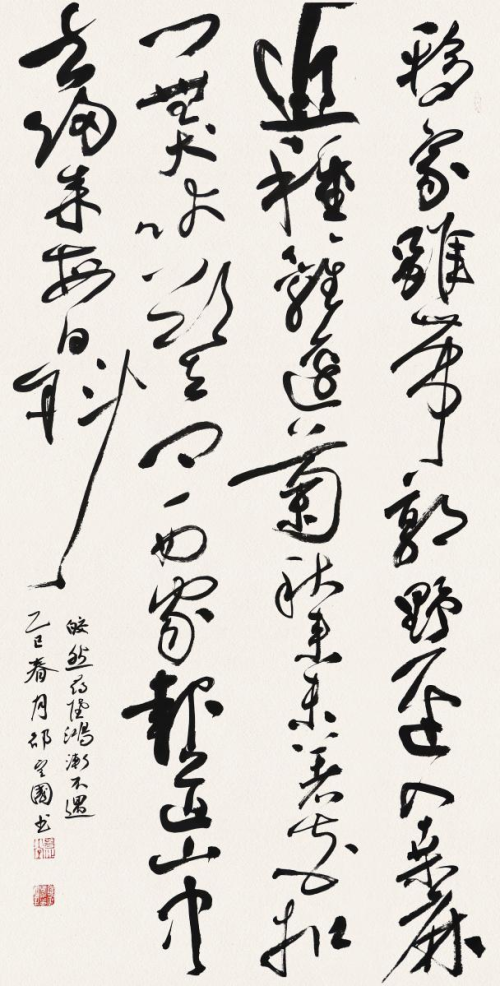 移家雖帶郭野徑入桑麻
近種籬邊菊秋来未著花扣
門無犬吠欲去問西家報道山中
去歸来每日斜
皎然尋陸鴻漸不遇
乙巳春月邵國书